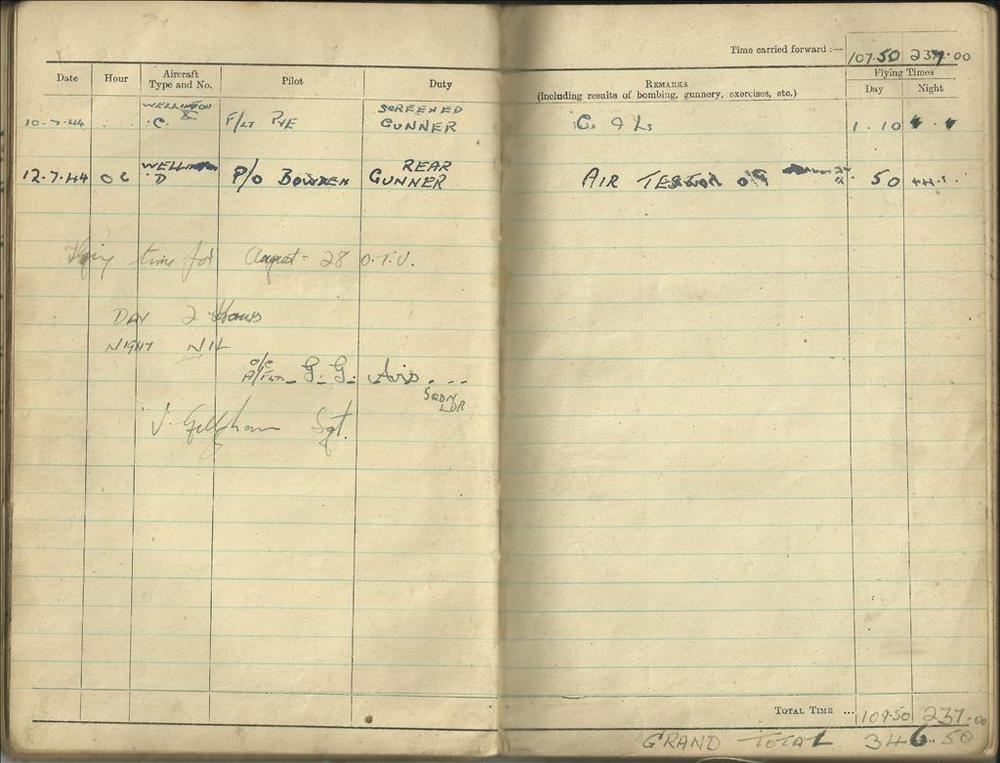 Time carried forward :— 107.50 237.00
Date Hour Aircraft Type and No. Pilot Duty
REMARKS (including results of bombing, gunnery, exercises, etc.) Flying Times Day Night
WELLINGTON X SCREENED
10-7-44 "C" F/LT PYE GUNNER C. & Ls 1.10
WELLINGTON REAR
12.7.44 "D" P/O BOWDEN GUNNER AIR TEST 50
Flying time for August - 28 O.T.U.
DAY 2 Hours
NIGHT NIL
G. G. Avis
SQDN LDR
Sgt.
TOTAL TIME ... 109.50 237.00
GRAND TOTAL 346.50